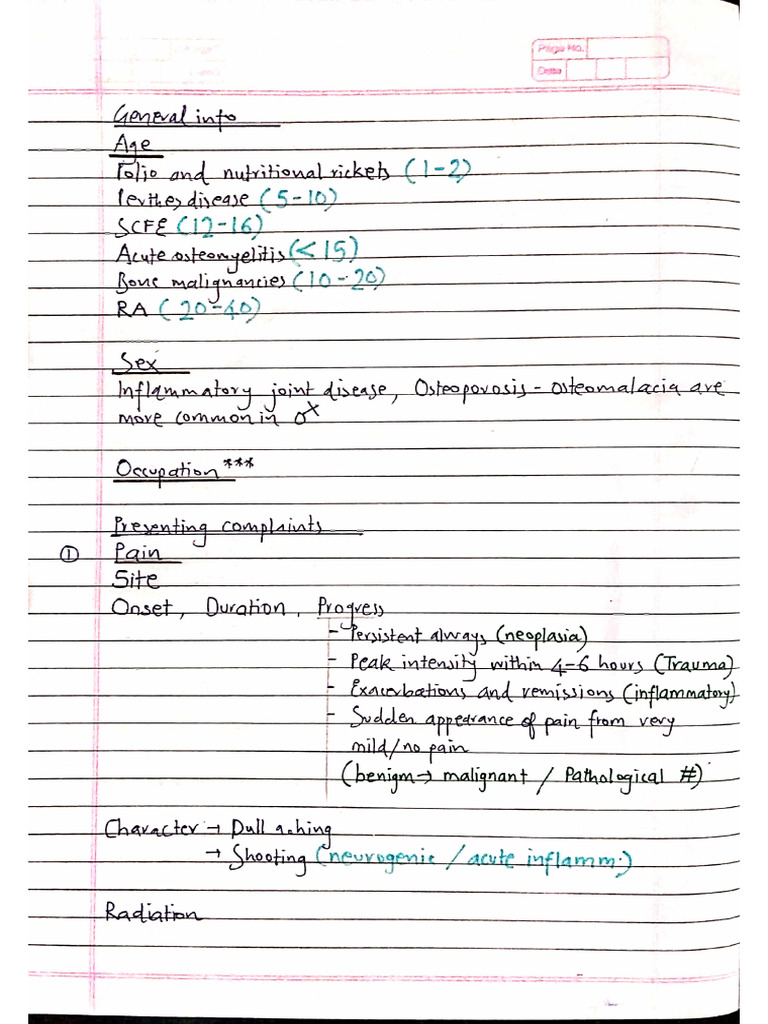 Page No.
Date
General info
Age
Polio and nutritional rickets (1-2)
Perthes disease (5-10)
SCFE (12-16)
Acute osteomyelitis (<15)
Bone malignancies (10-20)
RA (20-40)
Sex
Inflammatory joint disease, Osteoporosis - osteomalacia are
more common in
Occupation ***
Presenting complaints
① Pain
Site
Onset, Duration, Progress
- Persistent always (neoplasia)
- Peak intensity within 4-6 hours (Trauma)
- Exacerbations and remissions (inflammatory)
- Sudden appearance of pain from very
mild/no pain
(benign → malignant / Pathological #)
Character → Dull aching
→ Shooting (neurogenic / acute inflamm.)
Radiation